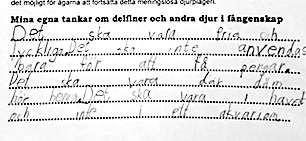 det möjligt för ägarna att fortsätta detta meningslösa djurplågeri.
Mina egna tankar om delfiner och andra djur i fångenskap
Det ska vara fria och
lyckliga. Det ska inte anvendas
bara för att få pengar.
Det ska vara där däm
hör hema. Det ska vara i havet
och inte i ett akvarium